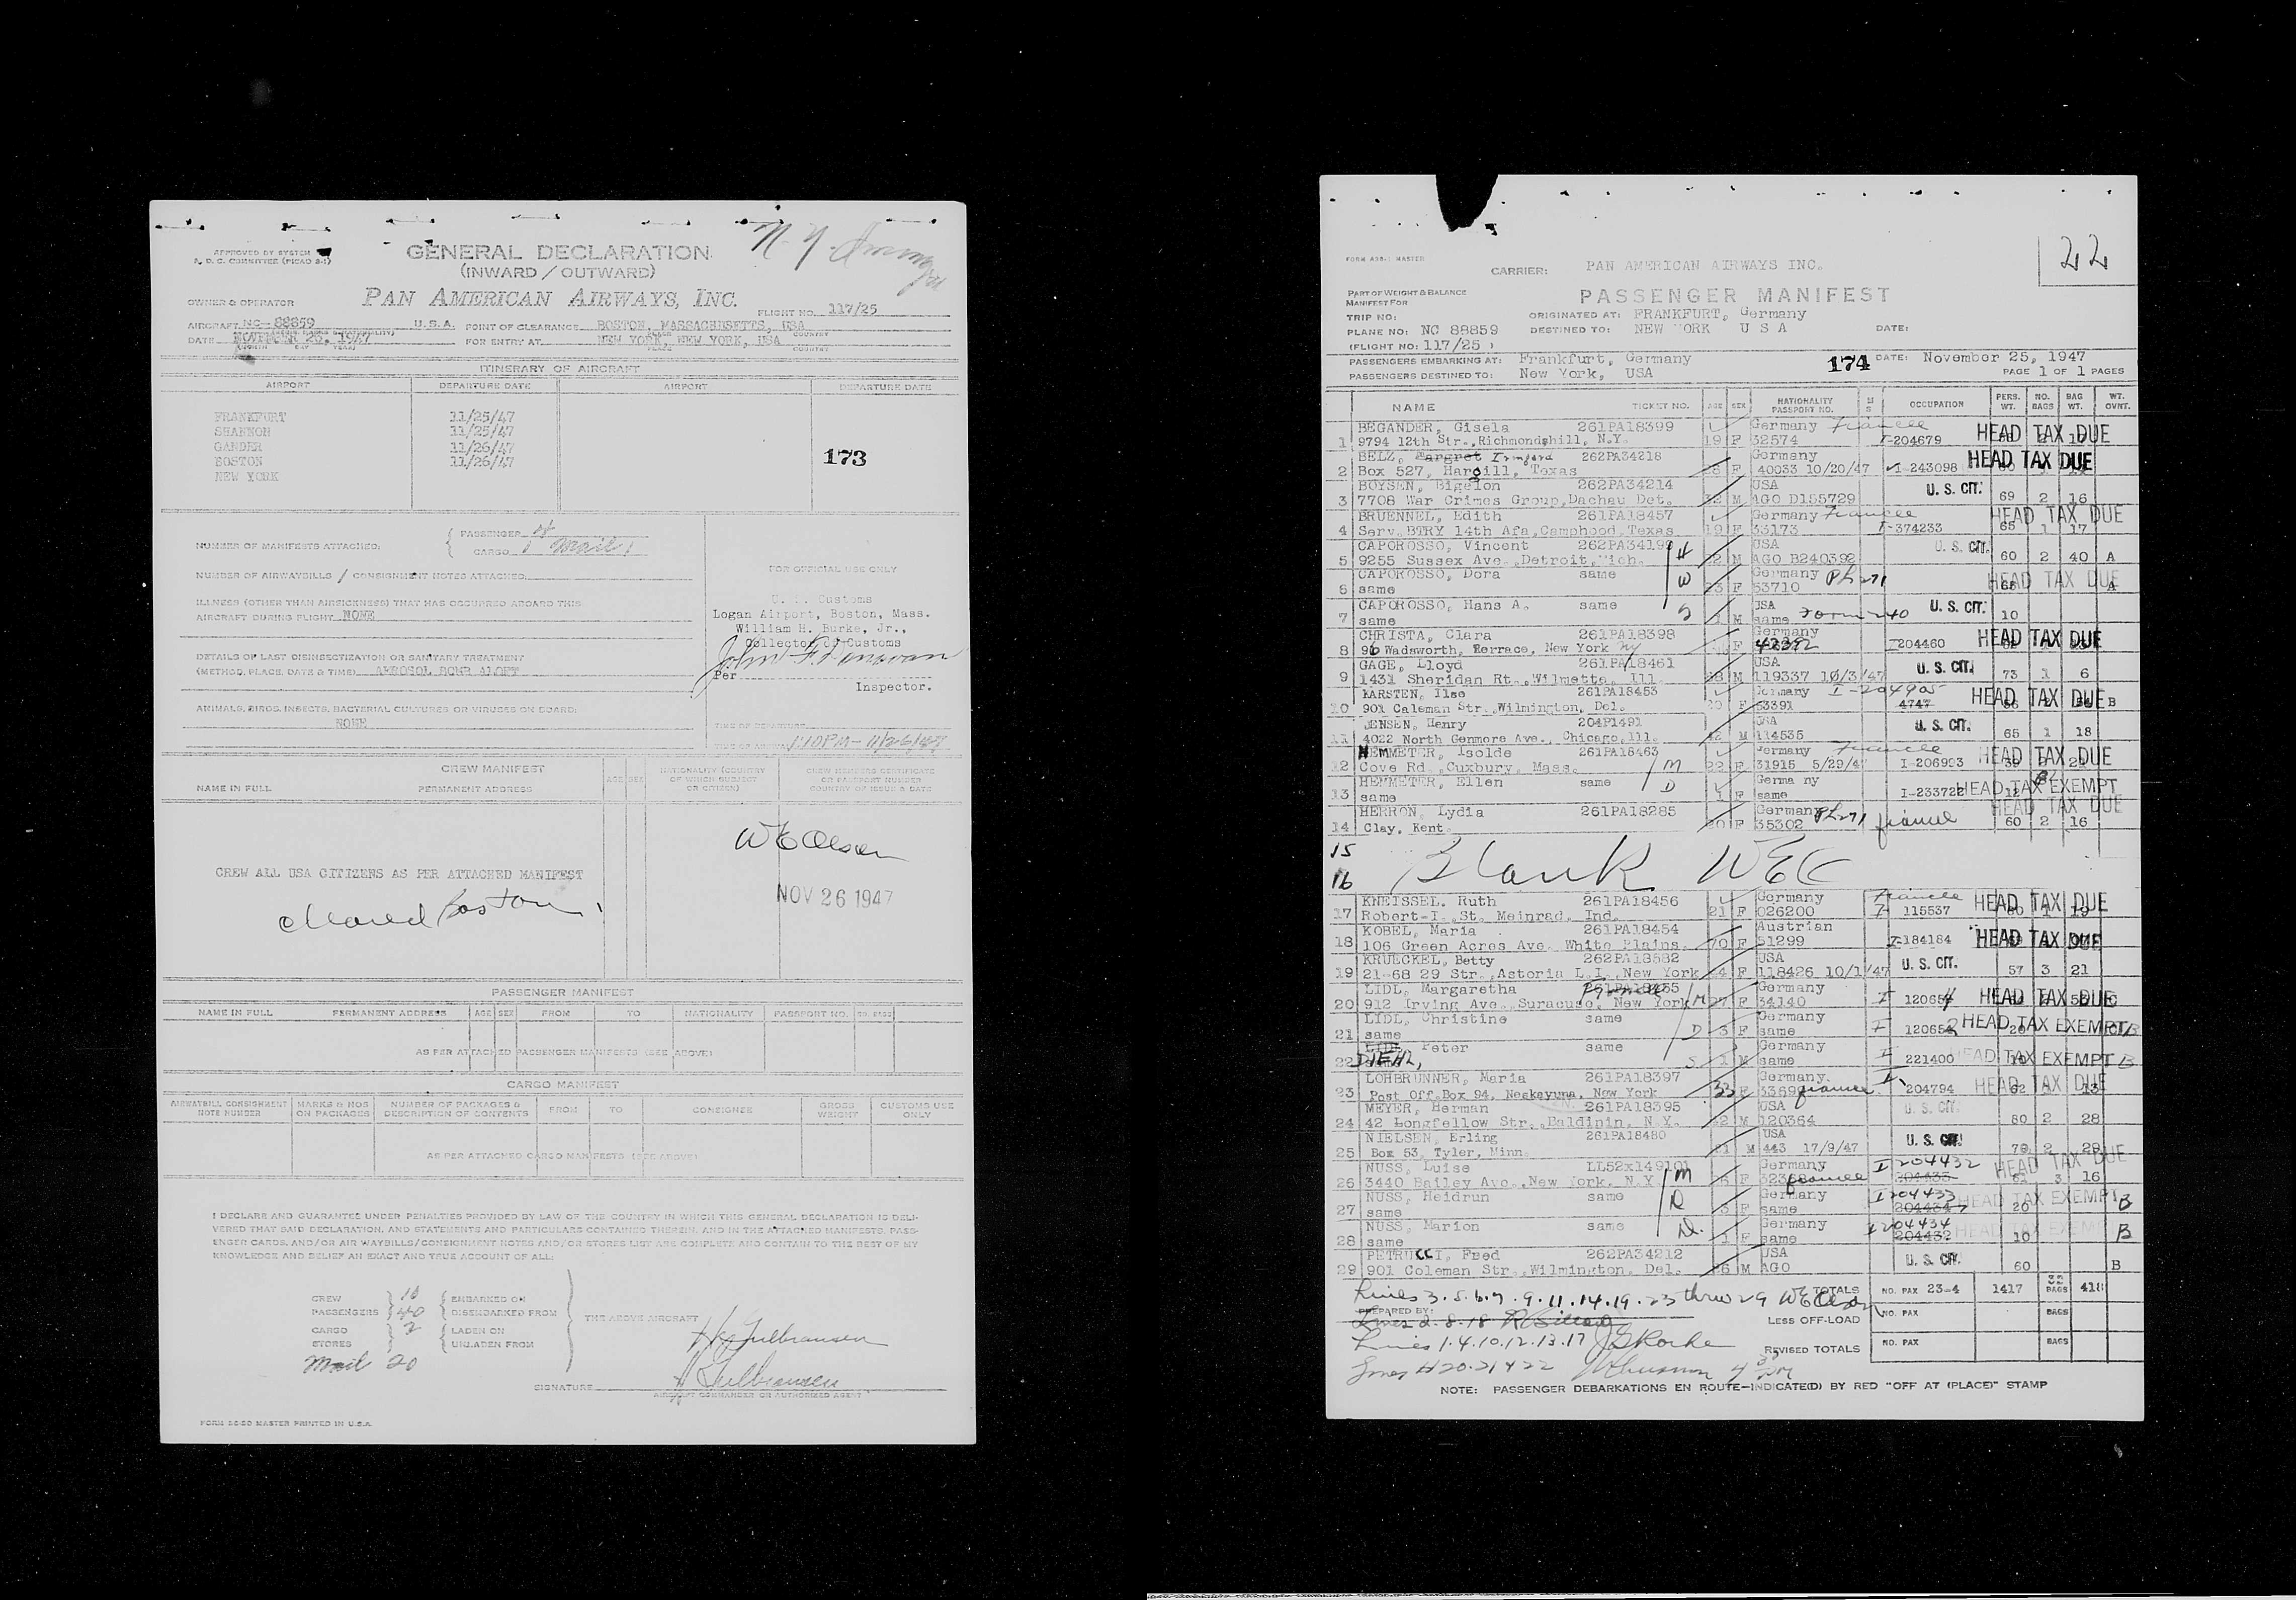 N.Y.
APPROVED BY SYSTEM
& D. C. COMMITTEE (PICAO 2-1)
GENERAL DECLARATION
(INWARD / OUTWARD)
OWNER & OPERATOR PAN AMERICAN AIRWAYS, INC. FLIGHT NO. 117/25
AIRCRAFT NC-88859 U.S.A. POINT OF CLEARANCE BOSTON, MASSACHUSETTS, USA
DATE NOVEMBER 26, 1947 FOR ENTRY AT NEW YORK, NEW YORK, USA
ITINERARY OF AIRCRAFT
AIRPORT DEPARTURE DATE AIRPORT DEPARTURE DATE
FRANKFURT 11/25/47
SHANNON 11/25/47
GANDER 11/26/47
BOSTON 11/26/47
NEW YORK
173
NUMBER OF MANIFESTS ATTACHED: PASSENGER
CARGO 1 Mail 1
NUMBER OF AIRWAYBILLS / CONSIGNMENT NOTES ATTACHED
ILLNESS (OTHER THAN AIRSICKNESS) THAT HAS OCCURRED ABOARD THIS
AIRCRAFT DURING FLIGHT NONE
DETAILS OF LAST DISINSECTIZATION OR SANITARY TREATMENT
(METHOD, PLACE, DATE & TIME) AEROSOL BOMB ALOFT
ANIMALS, BIRDS, INSECTS, BACTERIAL CULTURES OR VIRUSES ON BOARD:
NONE
FOR OFFICIAL USE ONLY
U. S. Customs
Logan Airport, Boston, Mass.
William H. Burke, Jr.,
Collector of Customs
Per
Inspector.
TIME OF DEPARTURE
TIME OF ARRIVAL 1:10PM-11/26/47
CREW MANIFEST
NAME IN FULL PERMANENT ADDRESS AGE SEX NATIONALITY (COUNTRY OF WHICH SUBJECT OR CITIZEN) CREW MEMBERS CERTIFICATE OR PASSPORT NUMBER COUNTRY OF ISSUE & DATE
W E Olsen
CREW ALL USA CITIZENS AS PER ATTACHED MANIFEST
NOV 26 1947
cleared Boston
PASSENGER MANIFEST
NAME IN FULL PERMANENT ADDRESS AGE SEX FROM TO NATIONALITY PASSPORT NO. NO. BAGS
AS PER ATTACHED PASSENGER MANIFESTS (SEE ABOVE)
CARGO MANIFEST
AIRWAYBILL CONSIGNMENT NOTE NUMBER MARKS & NOS ON PACKAGES NUMBER OF PACKAGES & DESCRIPTION OF CONTENTS FROM TO CONSIGNEE GROSS WEIGHT CUSTOMS USE ONLY
AS PER ATTACHED CARGO MANIFESTS (SEE ABOVE)
I DECLARE AND GUARANTEE UNDER PENALTIES PROVIDED BY LAW OF THE COUNTRY IN WHICH THIS GENERAL DECLARATION IS DELI-
VERED THAT SAID DECLARATION, AND STATEMENTS AND PARTICULARS CONTAINED THEREIN, AND IN THE ATTACHED MANIFESTS, PASS-
ENGER CARDS, AND/OR AIR WAYBILLS/CONSIGNMENT NOTES AND/OR STORES LIST ARE COMPLETE AND CONTAIN TO THE BEST OF MY
KNOWLEDGE AND BELIEF AN EXACT AND TRUE ACCOUNT OF ALL:
CREW 10 EMBARKED ON
PASSENGERS 40 DISEMBARKED FROM
CARGO 2 LADEN ON
STORES UNLADEN FROM
THE ABOVE AIRCRAFT
Mail 20
SIGNATURE
AIRCRAFT COMMANDER OR AUTHORIZED AGENT
FORM 50-50 MASTER PRINTED IN U.S.A.
22
FORM ASB-1 MASTER
CARRIER: PAN AMERICAN AIRWAYS INC.
PART OF WEIGHT & BALANCE
MANIFEST FOR
PASSENGER MANIFEST
TRIP NO: ORIGINATED AT: FRANKFURT, Germany
PLANE NO: NC 88859 DESTINED TO: NEW YORK U S A DATE:
(FLIGHT NO: 117/25 )
PASSENGERS EMBARKING AT: Frankfurt, Germany 174 DATE: November 25, 1947
PASSENGERS DESTINED TO: New York, USA PAGE 1 OF 1 PAGES
NAME TICKET NO. AGE SEX NATIONALITY PASSPORT NO. M S OCCUPATION PERS. WT. NO. BAGS BAG WT. WT. OVNT.
BEGANDER, Gisela 261PA18399 Germany Fiancee HEAD TAX DUE
1 9794 12th Str., Richmondshill, N.Y. 19 F 32574 I-204679
BELZ, Margret Irmgard 262PA34218 Germany HEAD TAX DUE
2 Box 527, Hargill, Texas F 40033 10/20/47 I-243098
BOYSEN, Bigelon 262PA34214 USA U. S. CIT.
3 7708 War Crimes Group, Dachau Det. M AGO D155729 69 2 16
BRUENNEL, Edith 261PA18457 Germany Fiancee HEAD TAX DUE
4 Serv. BTRY 14th Afa, Camphood, Texas 19 F 33173 I-374233 65 1 17
CAPOROSSO, Vincent 262PA34199 H USA U. S. CIT.
5 9255 Sussex Ave., Detroit, Mich. M AGO B240392 60 2 40 A
CAPOROSSO, Dora same W Germany Ph 271 HEAD TAX DUE
6 same F 53710 A
CAPOROSSO, Hans A. same S USA U. S. CIT.
7 same 1 M same 10
CHRISTA, Clara 261PA18398 Germany HEAD TAX DUE
8 96 Wadsworth, Terrace, New York NY F 42392 I204460
GAGE, Lloyd 261PA18461 USA U. S. CIT.
9 1431 Sheridan Rt., Wilmette, Ill. M 119337 10/3/47 73 1 6
KARSTEN, Ilse 261PA18453 Germany I-204905 HEAD TAX DUE
10 901 Caleman Str., Wilmington, Del. 20 F 63391 4747 B
JENSEN, Henry 204P1491 USA U. S. CIT.
11 4022 North Genmore Ave., Chicago, Ill. M 114535 65 1 18
HEMMETER, Isolde 261PA18463 M Germany Fiancee HEAD TAX DUE
12 Cove Rd., Cuxbury, Mass. 22 F 31915 5/29/47 I-206993
HEMMETER, Ellen same D Germany HEAD TAX EXEMPT
13 same 1 F same I-233722 12
HERRON, Lydia 261PA18285 Germany Ph 271 fiancee HEAD TAX DUE
14 Clay, Kent. F 35302 60 2 16
15
16 Blank WEO
KNEISSEL, Ruth 261PA18456 Germany Fiancee HEAD TAX DUE
17 Robert-I., St. Meinrad, Ind. 21 F 026200 I- 115537
KOBEL, Maria 261PA18454 Austrian HEAD TAX DUE
18 106 Green Acres Ave. White Plains. F 51299 I-184184
KRUECKEL, Betty 262PA18582 USA U. S. CIT.
19 21-68 29 Str., Astoria L.I., New York F 118426 10/1/47 57 3 21
LIDL, Margaretha M Germany HEAD TAX DUE
20 912 Irving Ave., Suracuse, New York 27 F 34140 I C
LIDL, Christine same D Germany HEAD TAX EXEMPT
21 same 3 F same I B
Peter same Germany HEAD TAX EXEMPT
22 DIEHL, S 1 M same I 221400 B
LOHBRUNNER, Maria 261PA18397 Germany I HEAD TAX DUE
23 Post Off. Box 94, Neskayuna, New York 33 F fiancee 204794
MEYER, Herman 261PA18395 USA U. S. CIT.
24 42 Longfellow Str., Baldinin, N.Y. M 120364 80 2 28
NIELSEN, Erling 261PA18480 USA U. S. CIT.
25 Box 53, Tyler, Minn. M 443 17/9/47 79 2 28
NUSS, Luise LL52x149101 M Germany I 204432 HEAD TAX DUE
26 3440 Bailey Ave., New York, N.Y. F fiancee 3 16
NUSS, Heidrun same D Germany I 204433 HEAD TAX EXEMPT
27 same 3 F same 20 B
NUSS, Marion same D. Germany I 204434 HEAD TAX EXEMPT
28 same 1 F same 204432 10 B
PETRUCCI, Fred 262PA34212 USA U. S. CIT.
29 901 Coleman Str., Wilmington, Del. M AGO 60 B
Lines 3.5.6.7.9.11.14.19.23 thru 29 W E Olsen TOTALS NO. PAX 23-4 1417 32 BAGS 418
PREPARED BY:
Lines 2.8.18
LESS OFF-LOAD NO. PAX BAGS
Lines 1.4.10.12.13.17
REVISED TOTALS NO. PAX BAGS
Lines # 20.21 & 22
NOTE: PASSENGER DEBARKATIONS EN ROUTE—INDICATE(D) BY RED "OFF AT (PLACE)" STAMP